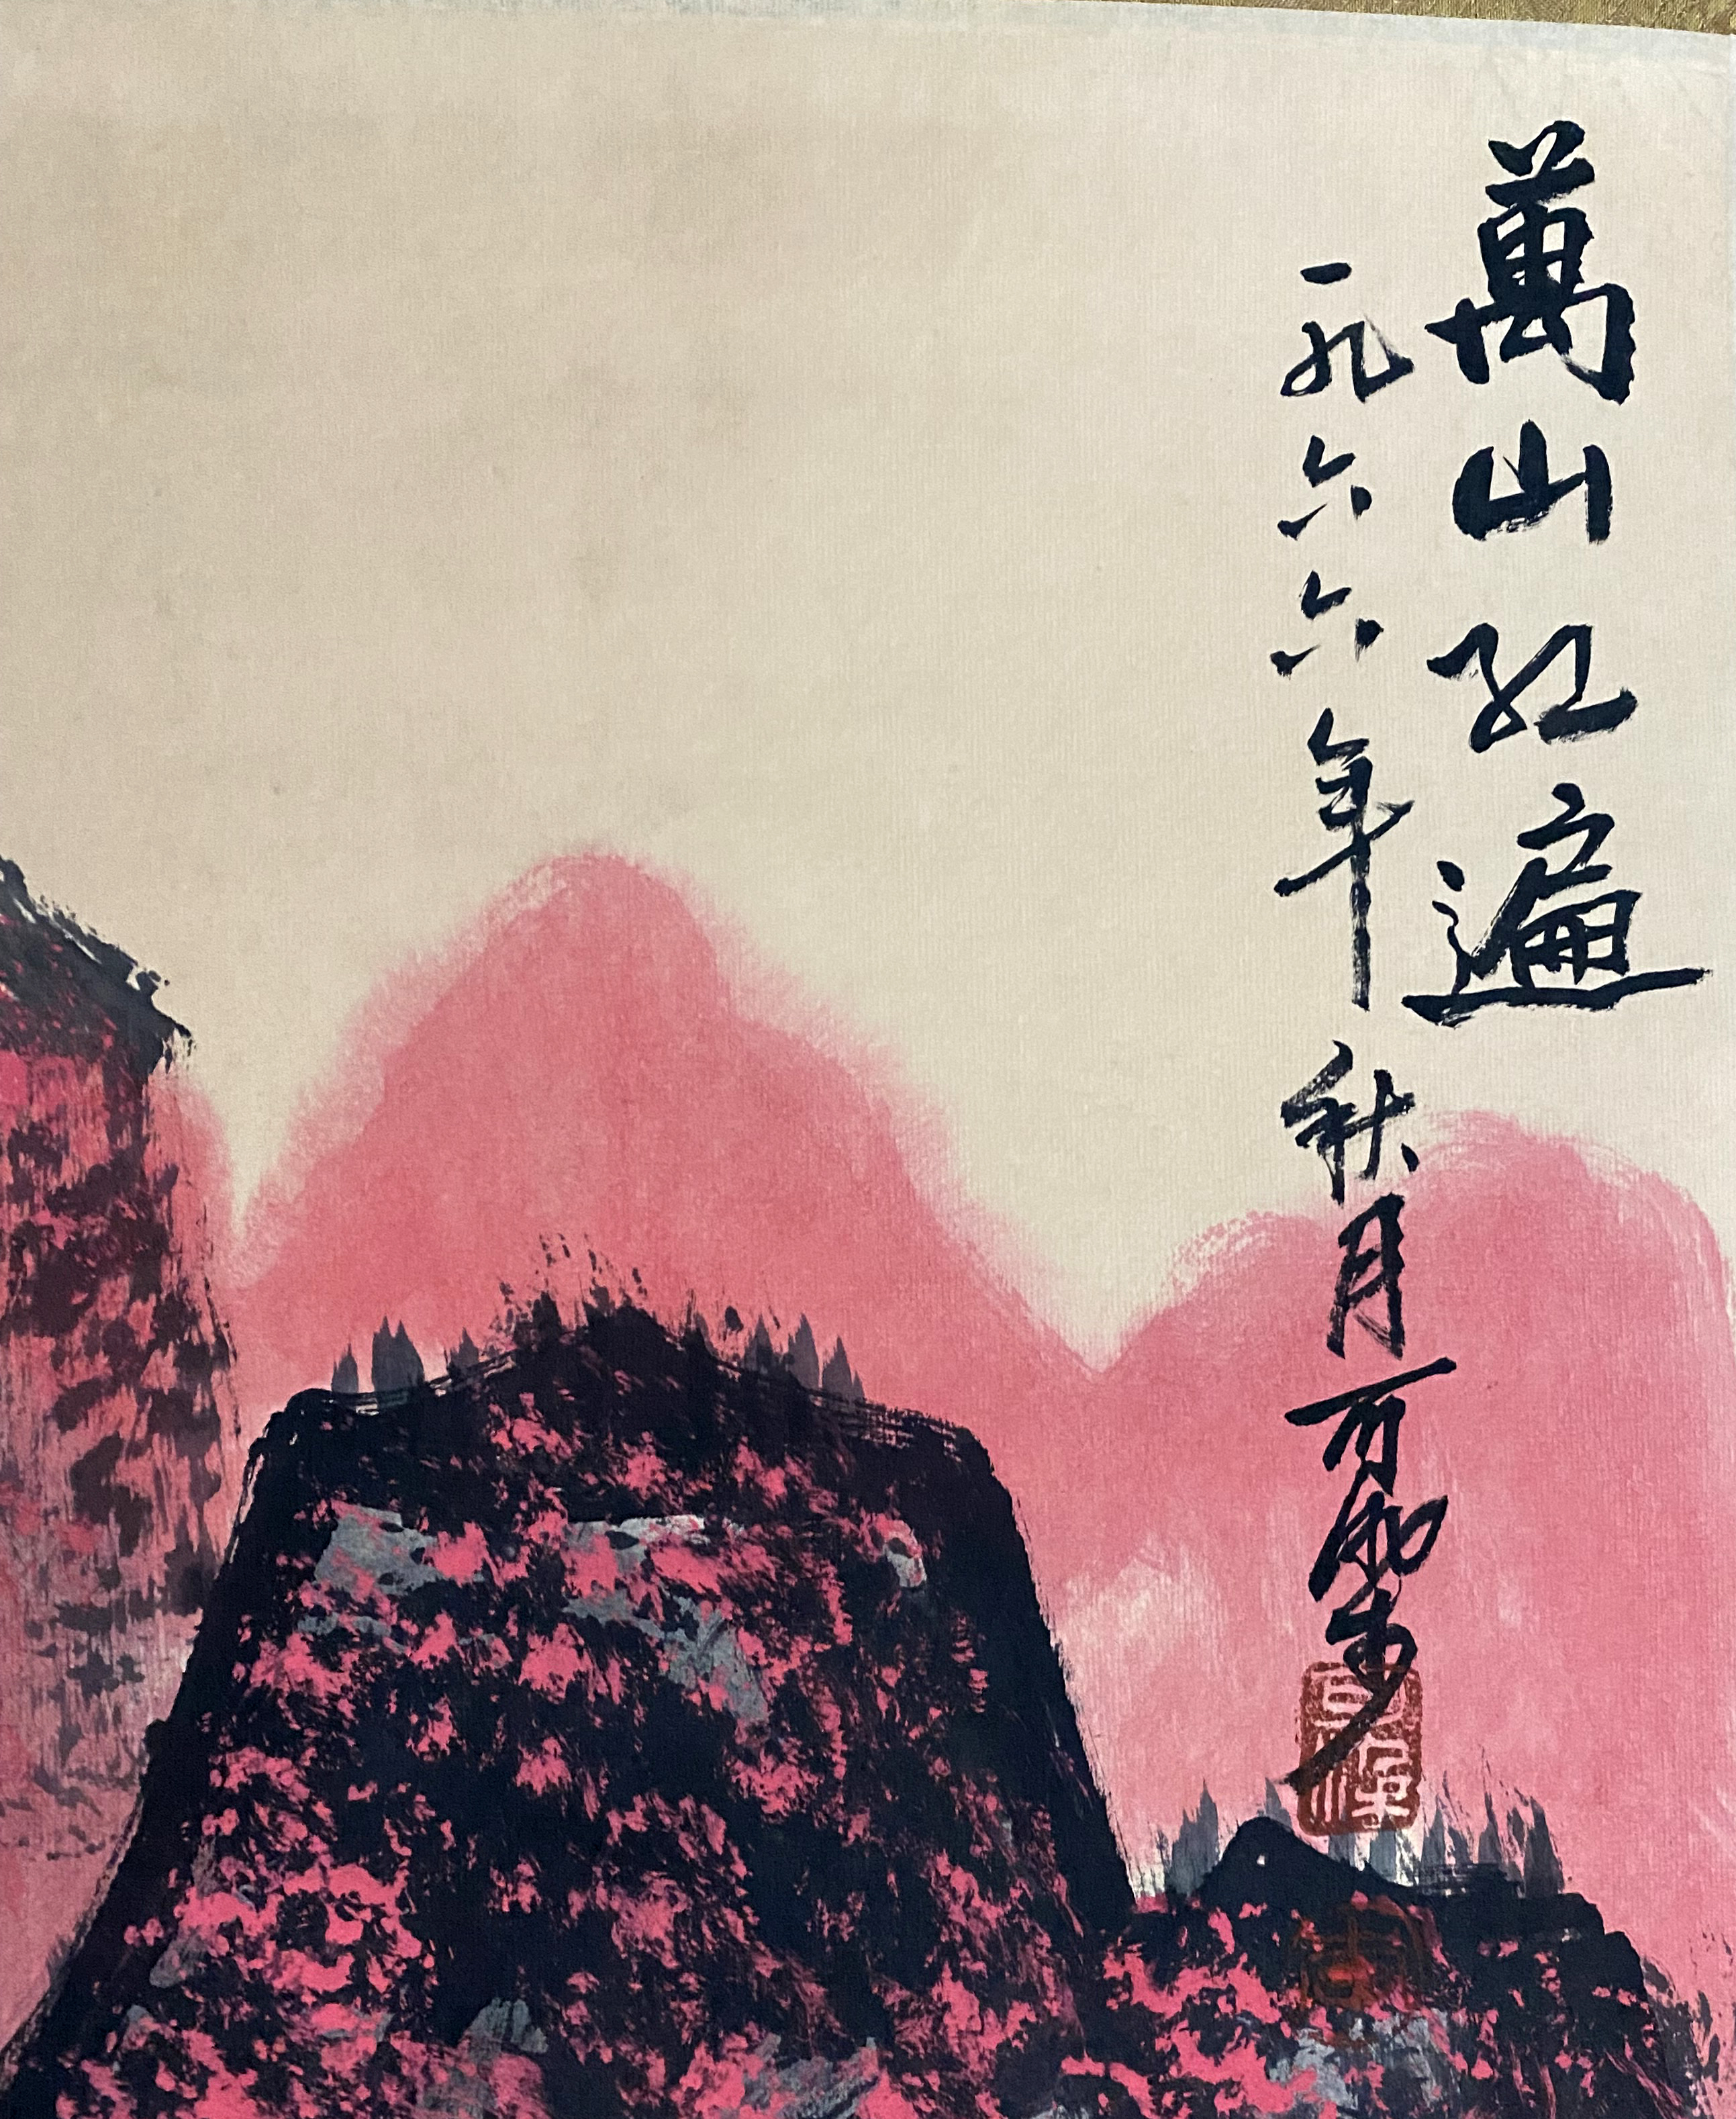 萬山红遍
一九六六年秋月可染